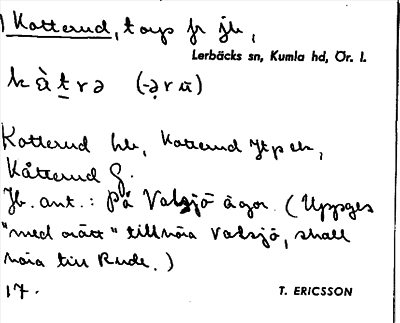 Kotterud, torp fr jb,
Lerbäcks sn, Kumla hd, Ör. l.
kàtrə (-ərū)
Kotterud hb, Kotterud Jtp eh,
Kåtterud G.
Jb. ant.: på Valsjö ägor. (Uppges
"med orätt" tillhöra Valsjö, skall
höra till Rude.)
17. T. ERICSSON